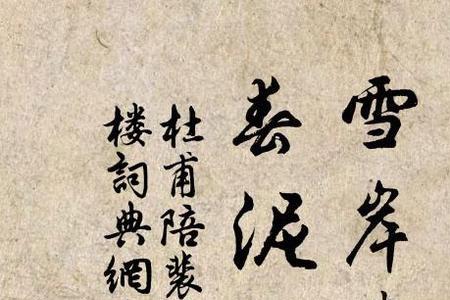 雪岸
春泥
杜甫陪裴
楼詞典網